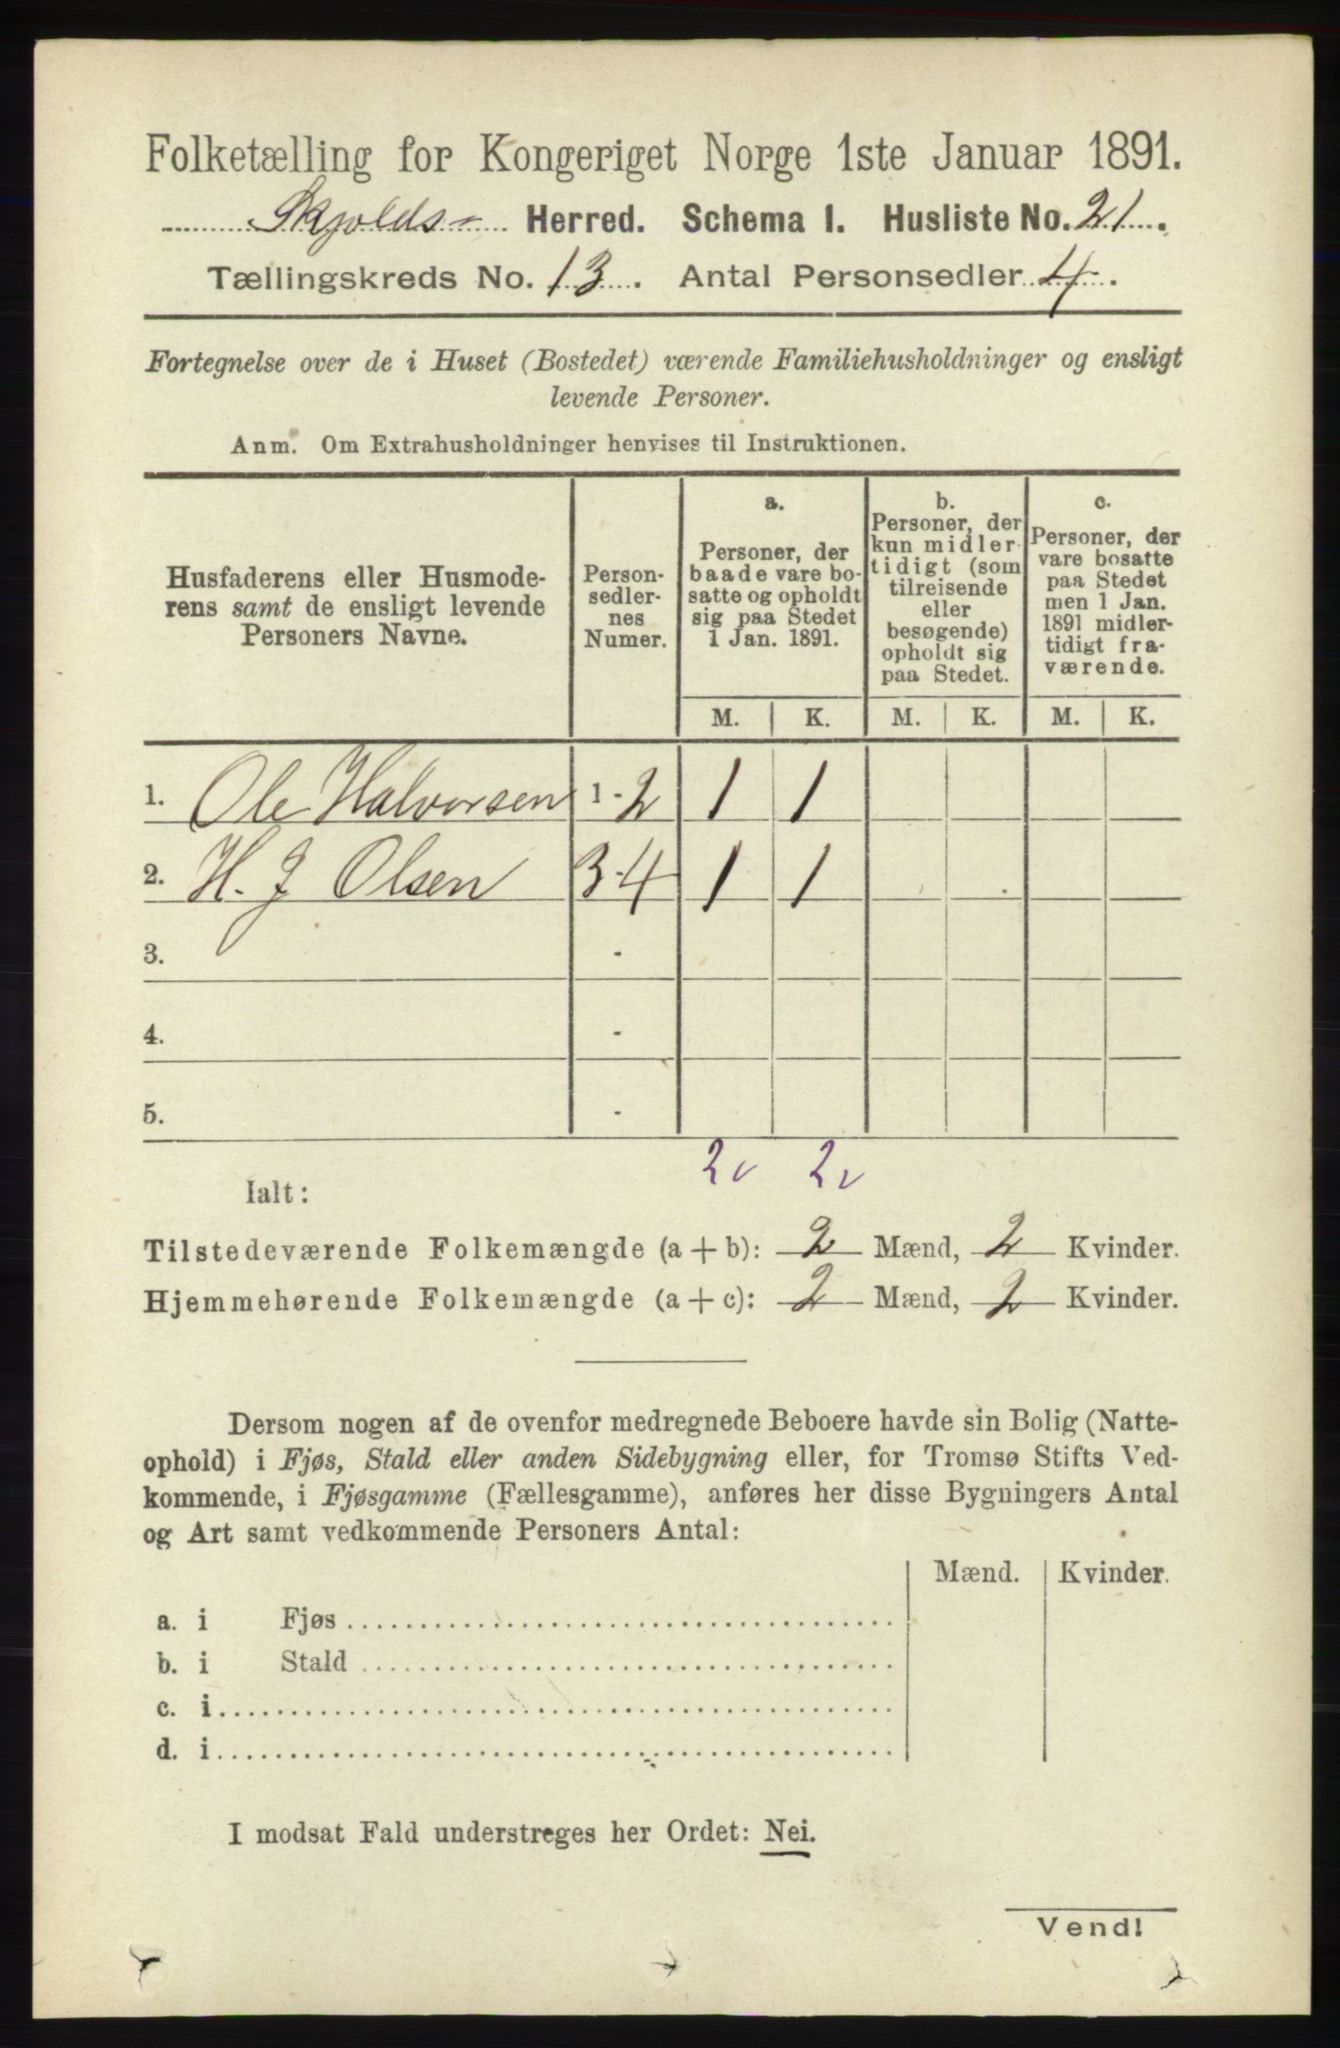 Folketælling for Kongeriget Norge 1ste Januar 1891.
Skjolds- Herred. Schema I. Husliste No. 21.
Tællingskreds No. 13. Antal Personsedler 4.
Fortegnelse over de i Huset (Bostedet) værende Familiehusholdninger og ensligt
levende Personer.
Anm. Om Extrahusholdninger henvises til Instruktionen.
Husfaderens eller Husmode-
rens samt de ensligt levende
Personers Navne.
Person-
sedler-
nes
Numer.
a.
Personer, der
baade vare bo-
satte og opholdt
sig paa Stedet
1 Jan. 1891.
b.
Personer, der
kun midler-
tidigt (som
tilreisende
eller
besøgende)
opholdt sig
paa Stedet.
c.
Personer, der
vare bosatte
paa Stedet
men 1 Jan.
1891 midler-
tidigt fra-
værende.
M. K. M. K. M. K.
1. Ole Halvorsen 1-2 1 1
2. H. J Olsen 3-4 1 1
3. -
4. -
5. -
2v 2v
Ialt:
Tilstedeværende Folkemængde (a+b): 2 Mænd, 2 Kvinder.
Hjemmehørende Folkemængde (a+c): 2 Mænd, 2 Kvinder.
Dersom nogen af de ovenfor medregnede Beboere havde sin Bolig (Natte-
ophold) i Fjøs, Stald eller anden Sidebygning eller, for Tromsø Stifts Ved-
kommende, i Fjøsgamme (Fællesgamme), anføres her disse Bygningers Antal
og Art samt vedkommende Personers Antal:
Mænd. Kvinder.
a. i Fjøs
b. i Stald
c. i
d. i
I modsat Fald understreges her Ordet: Nei.
Vend!